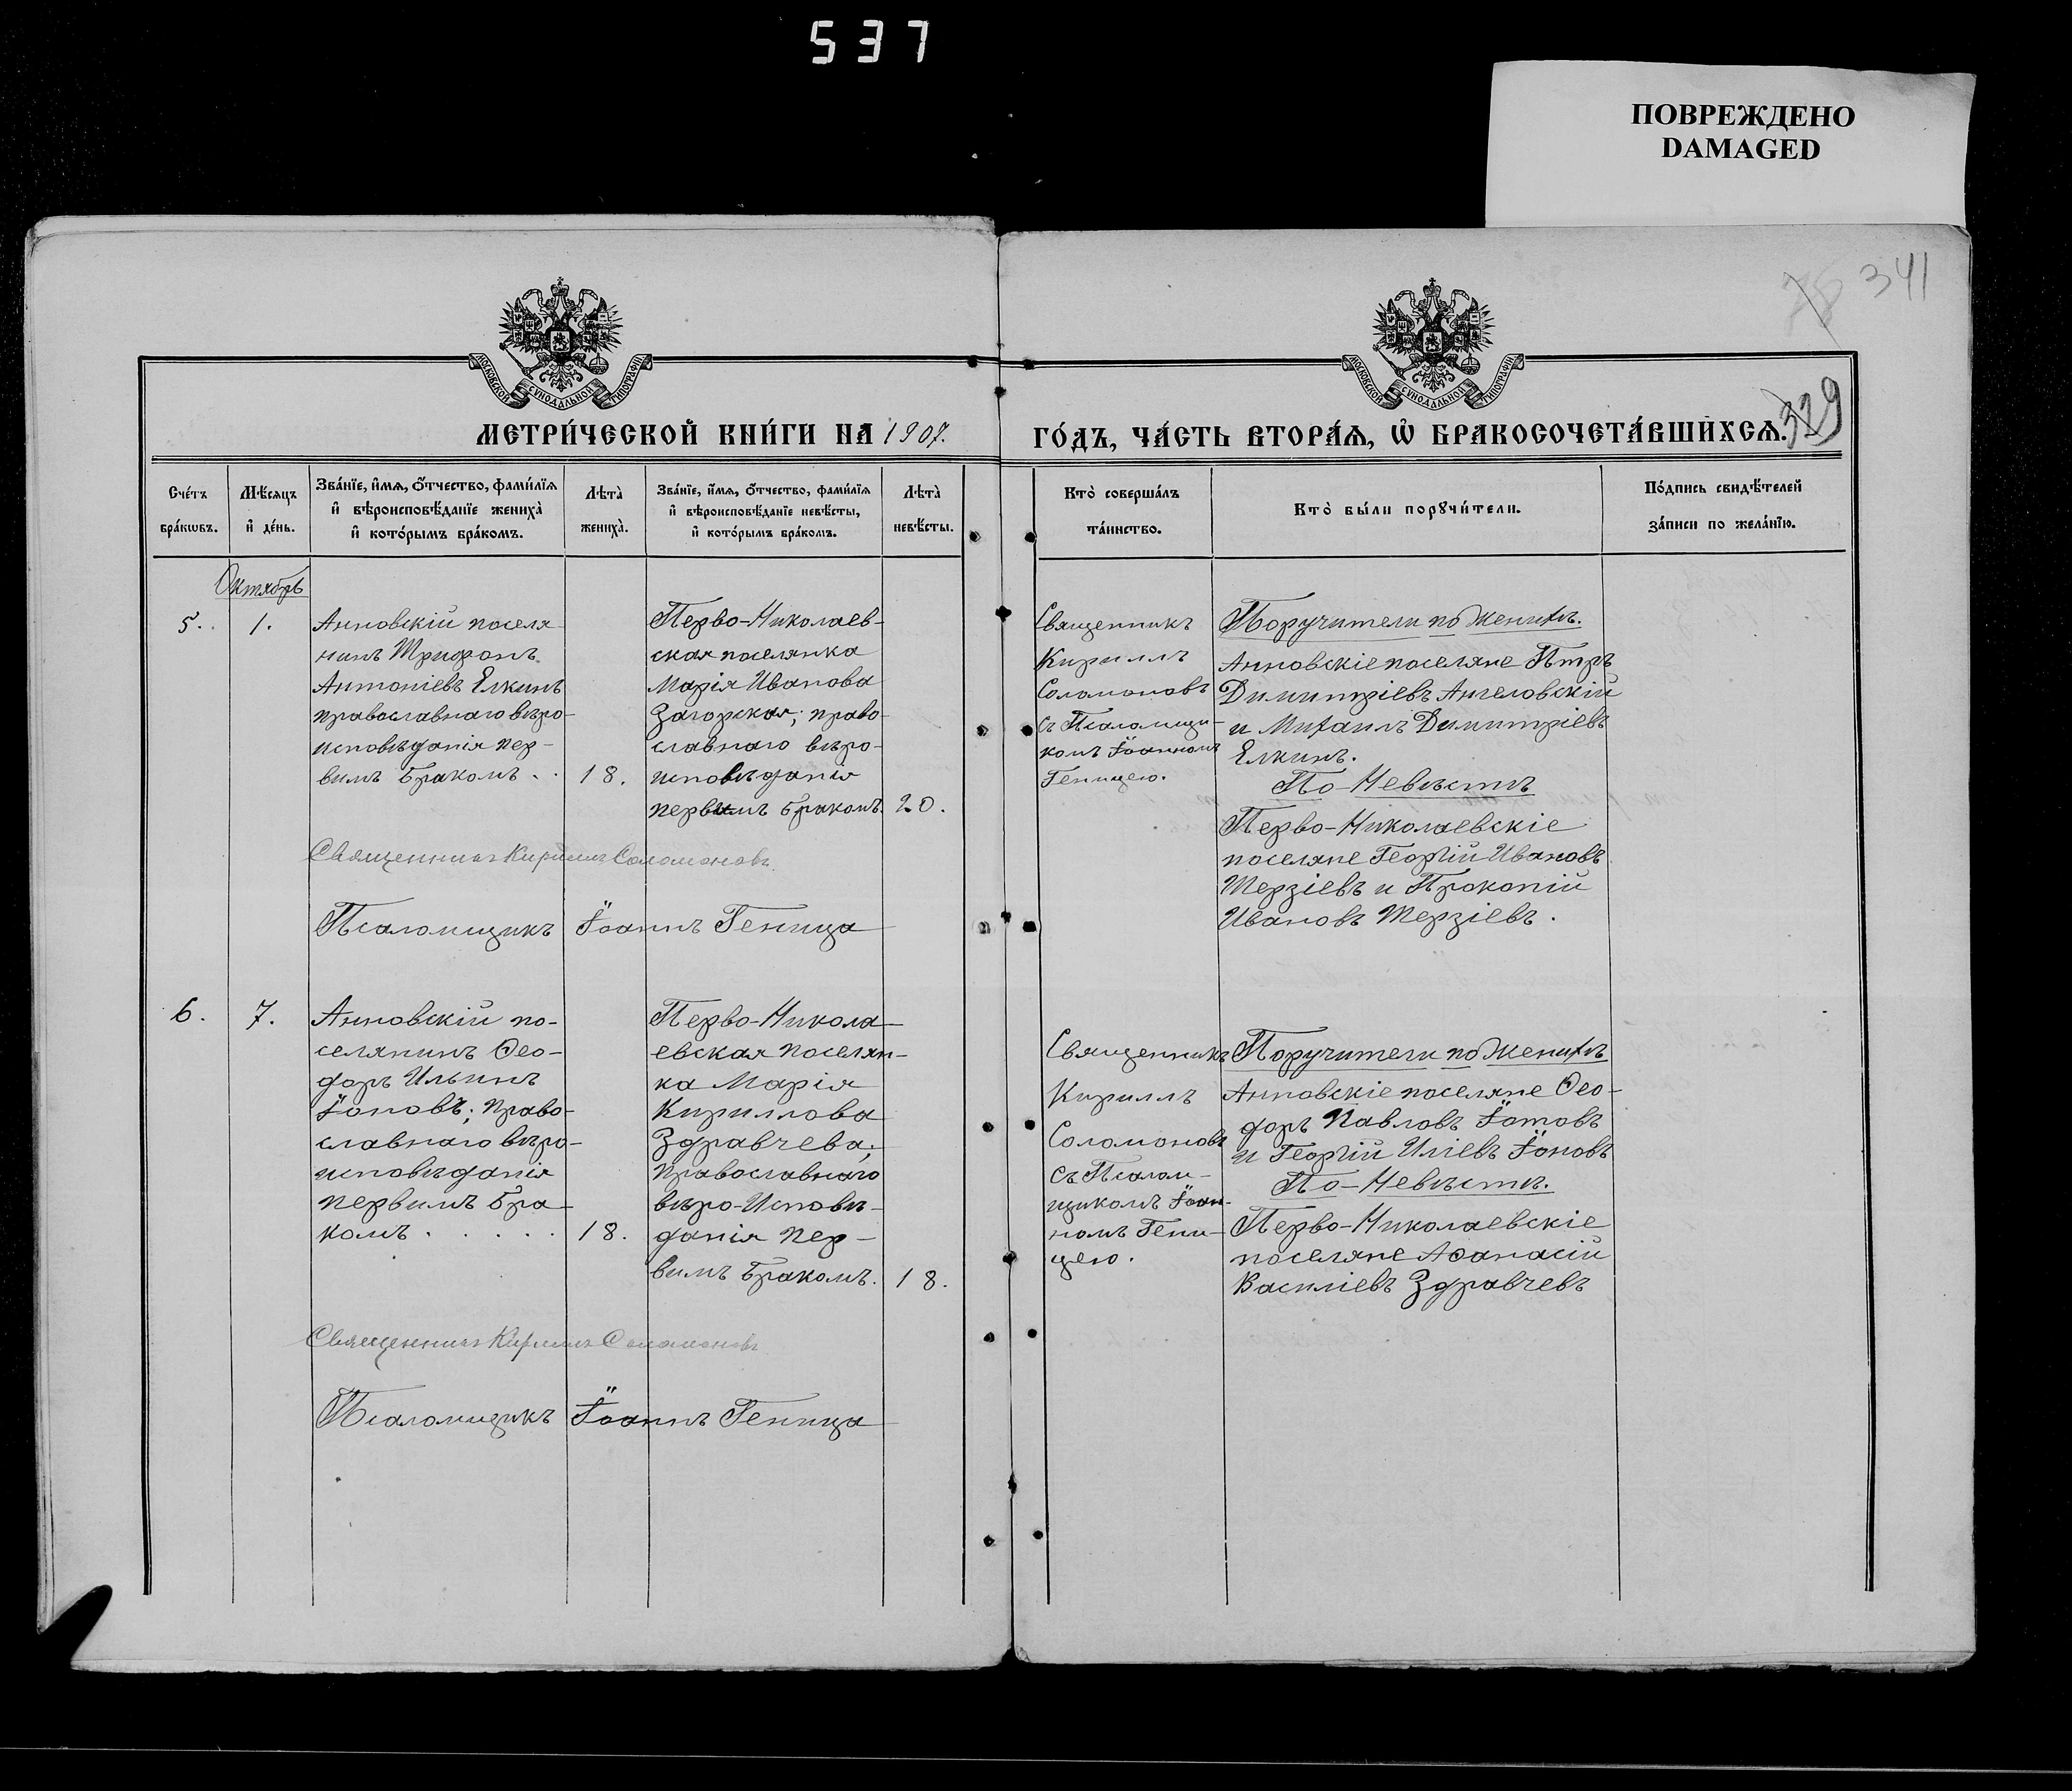 537
ПОВРЕЖДЕНО
DAMAGED
78 341
329
МОСКОВСКОЙ СѴНОДАЛЬНОЙ ТИПОГРАФІИ
МОСКОВСКОЙ СѴНОДАЛЬНОЙ ТИПОГРАФІИ
МЕТРИ́ЧЕСКОЙ КНИ́ГИ НА 1907.
ГО́ДЪ, ЧА́СТЬ ВТОРА́Ѧ, Ѡ҆ БРАКОСОЧЕТА́ВШИХСѦ.
Сче́тъ
бра́кѡвъ.
Мѣ́сѧцъ
и҆ де́нь.
Зва́нїе, и҆́мѧ, ѻ҆́тчество, фами́лїѧ
и҆ вѣроисповѣ́данїе жениха̀
и҆ кото́рымъ бра́комъ.
Лѣта̀
жениха̀.
Зва́нїе, и҆́мѧ, ѻ҆́тчество, фами́лїѧ
и҆ вѣроисповѣ́данїе невѣ́сты,
и҆ кото́рымъ бра́комъ.
Лѣта̀
невѣ́сты.
Кто̀ соверша́лъ
та́инство.
Кто̀ бы́ли порꙋчи́тели.
По́дпись свидѣ́телей
за́писи по жела́нїю.
Октябрь
5.
1.
Анновскій поселя
нинъ Трифонъ
Антоніевъ Елкинъ
православнаго вѣро-
исповѣданія пер-
вимъ бракомъ . .
18.
Перво-Николаев-
ская поселянка
Марія Иванова
Загорская; право-
славнаго вѣро-
исповѣданія
первимъ бракомъ.
20.
Священникъ
Кириллъ
Соломоновъ
съ Псаломщи-
комъ Іоанномъ
Геницею.
Поручители по Женихѣ.
Анновскіе поселяне Птръ
Димитріевъ Ангеловскій
и Михаилъ Димитріевъ
Елкинъ.
По Невѣстѣ
Перво-Николаевскіе
поселяне Георгій Ивановъ
Терзіевъ и Прокопій
Ивановъ Терзіевъ.
Священникъ Кириллъ Соломоновъ
Псаломщикъ Іоаннъ Геница
6.
7.
Анновскій по-
селянинъ Ѳео-
доръ Ильинъ
Іоновъ; право-
славнаго вѣро-
исповѣданія
первимъ бра-
комъ . . . . .
18.
Перво-Никола-
евская поселян-
ка Марія
Кириллова
Здравчева;
православнаго
вѣро-Исповѣ-
данія пер-
вимъ бракомъ.
18.
Священникъ
Кириллъ
Соломоновъ
съ Псалом-
щикомъ Іоан-
номъ Гени-
цею.
Поручители по Женихѣ
Анновскіе поселяне Ѳео-
доръ Павловъ Іотовъ
и Георгій Иліевъ Іоновъ
По Невѣстѣ.
Перво-Николаевскіе
поселяне Аѳанасій
Василіевъ Здравчевъ
Священникъ Кириллъ Соломоновъ
Псаломщикъ Іоаннъ Геница